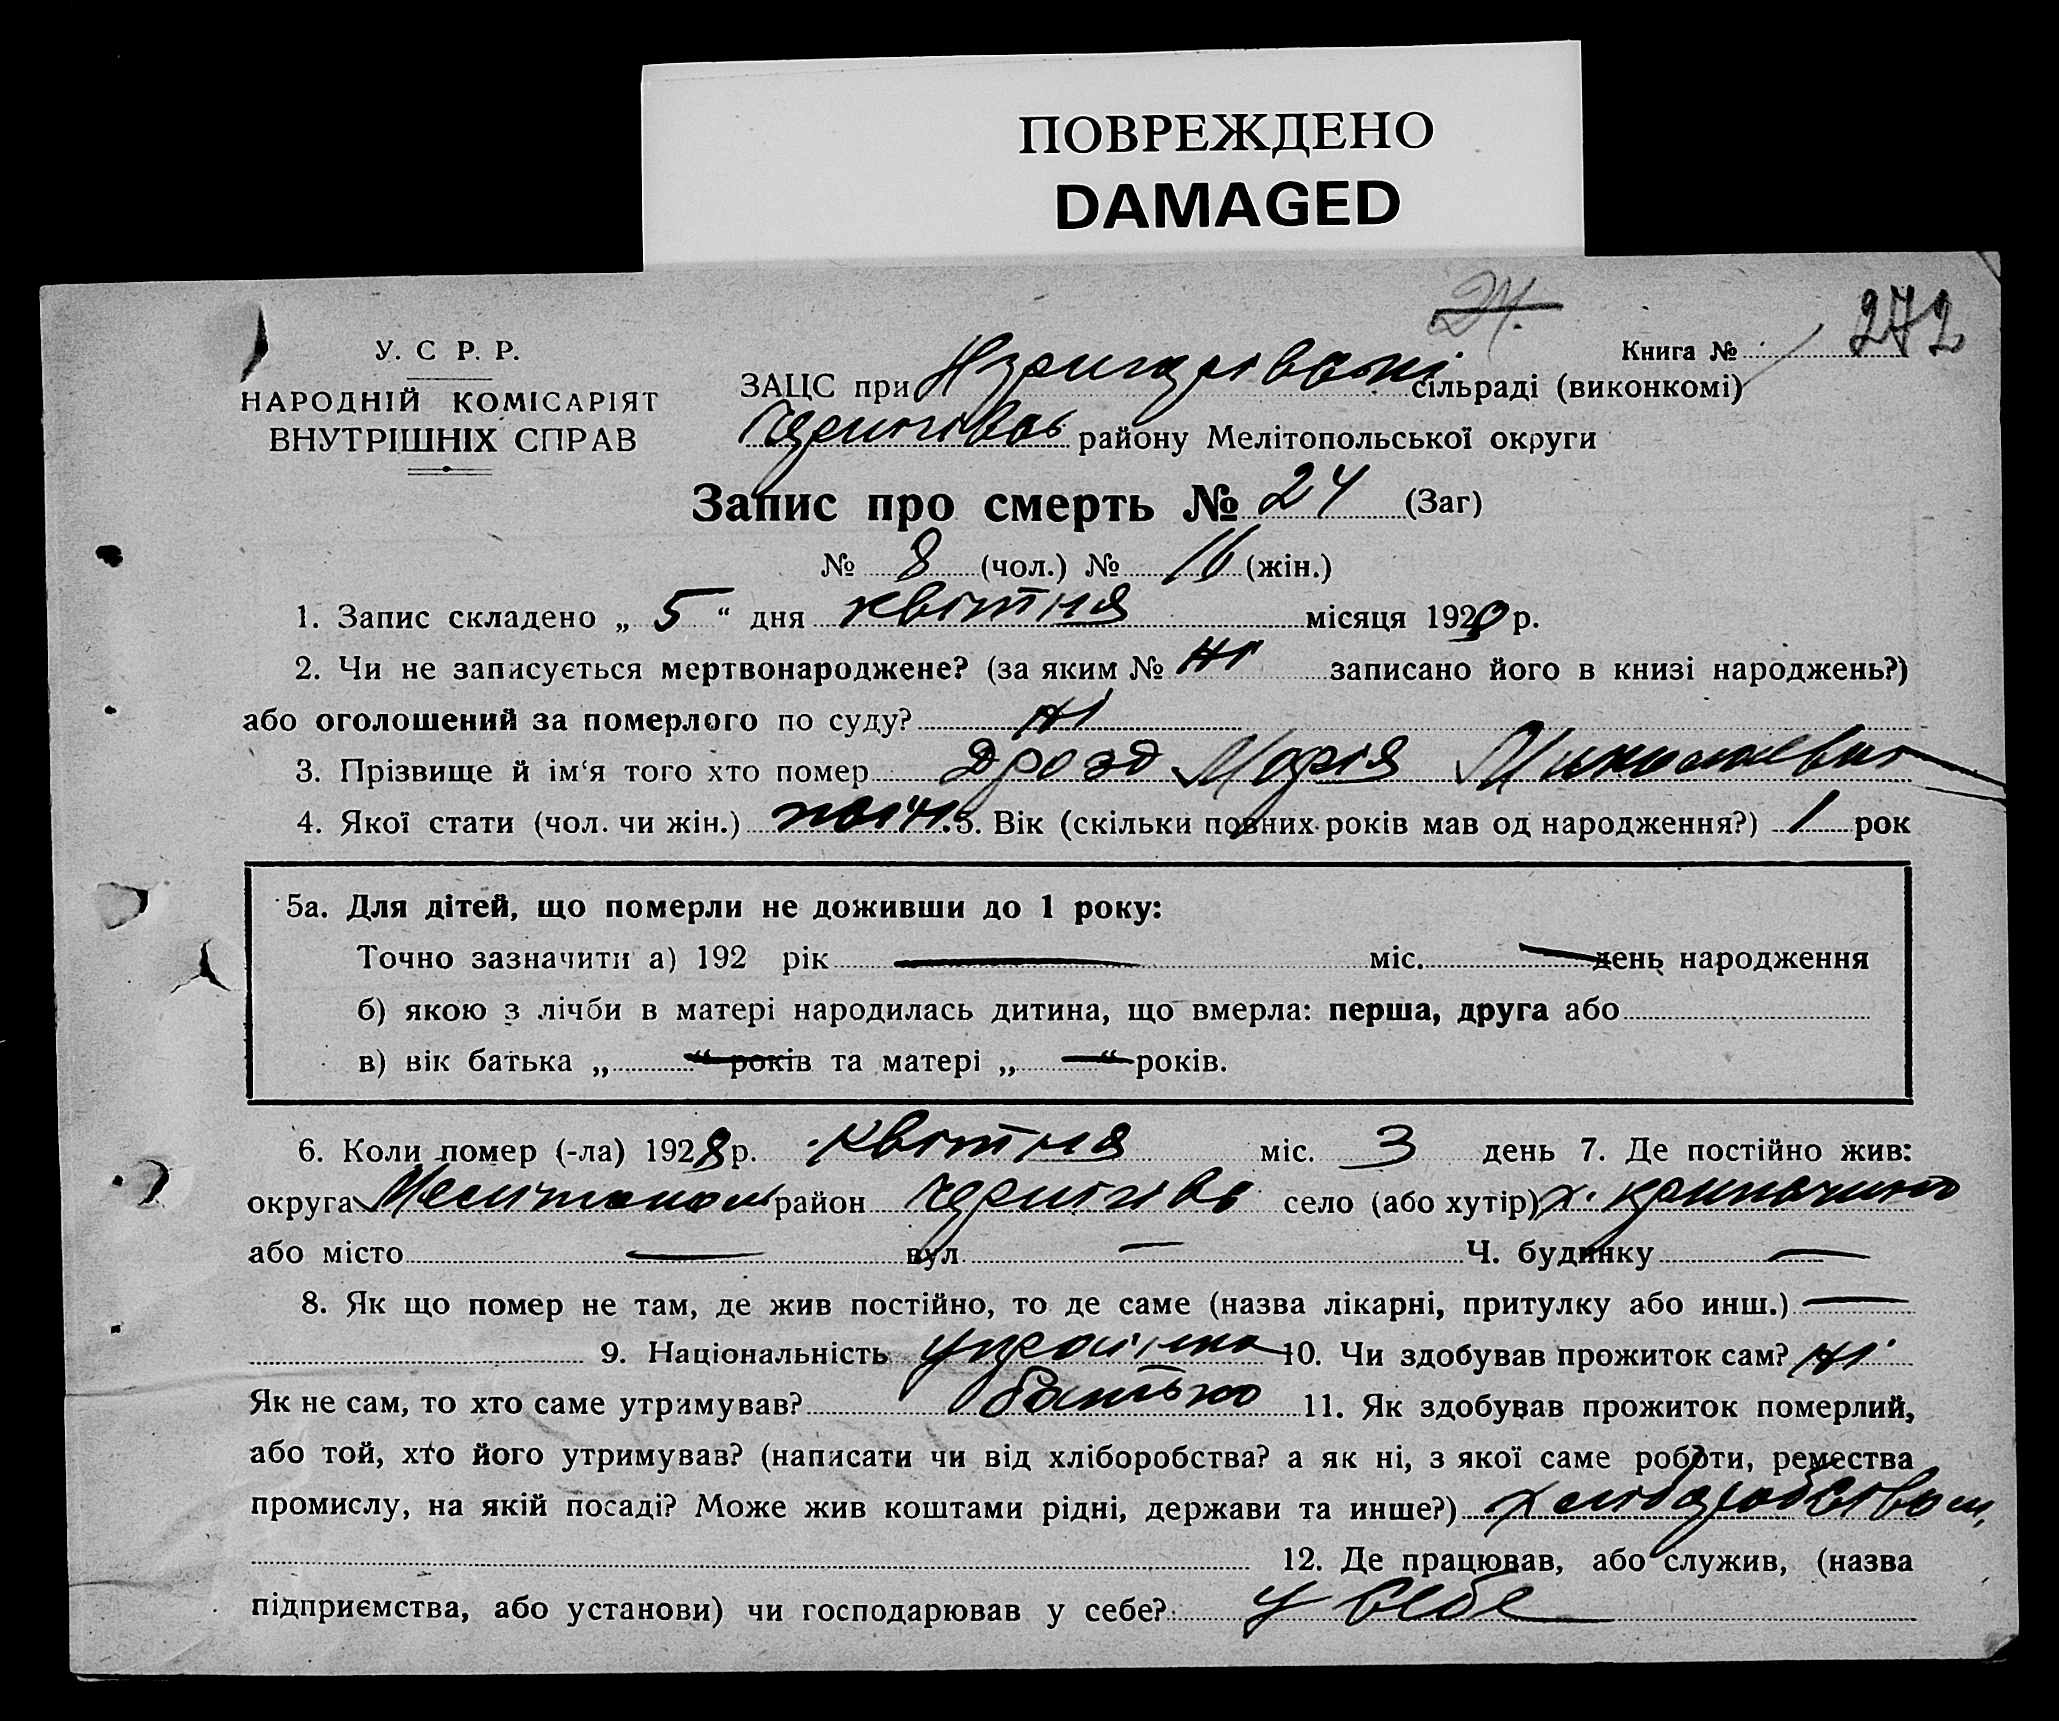 ПОВРЕЖДЕНО
DAMAGED
24.
272
У. С Р. Р.
Книга №
НАРОДНІЙ КОМІСАРІЯТ
ВНУТРІШНІХ СПРАВ
ЗАЦС при сільраді (виконкомі)
Чернігівс району Мелітопольської округи
Запис про смерть № 24 (Заг)
№ 8 (чол.) № 16 (жін.)
1. Запис складено „ 5 “ дня квітня місяця 192 р.
2. Чи не записується мертвонароджене? (за яким № ні записано його в книзі народжень?)
або оголошений за померлого по суду? ні
3. Прізвище й ім‘я того хто помер Дрозд Марія Миколаевна
4. Якої стати (чол. чи жін.) жіноч. 5. Вік (скільки повних років мав од народження?) 1 рок
5а. Для дітей, що померли не доживши до 1 року:
Точно зазначити а) 192 рік міс. день народження
б) якою з лічби в матері народилась дитина, що вмерла: перша, друга або
в) вік батька „ “ років та матері „ “ років.
6. Коли помер (-ла) 1928 р. квітня міс. 3 день 7. Де постійно жив:
округа Мелітополь район Чернігівс село (або хутір) х.
або місто — вул. — Ч. будинку —
8. Як що помер не там, де жив постійно, то де саме (назва лікарні, притулку або инш.) —
9. Національність україінка 10. Чи здобував прожиток сам? ні
Як не сам, то хто саме утримував? батько 11. Як здобував прожиток померлий,
або той, хто його утримував? (написати чи від хліборобства? а як ні, з якої саме роботи, ремества
промислу, на якій посаді? Може жив коштами рідні, держави та инше?) хліборобством,
12. Де працював, або служив, (назва
підприємства, або установи) чи господарював у себе? у себе